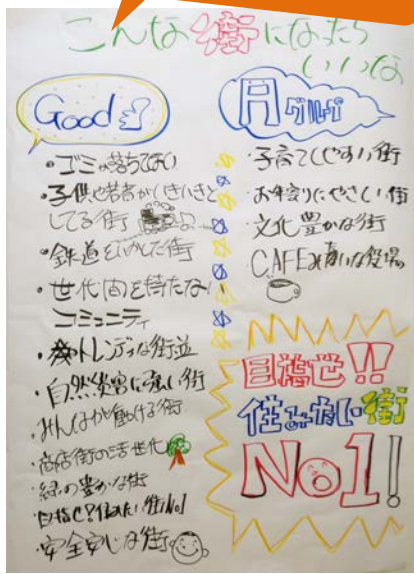 こんな街になったら
いいな
Good
・ゴミが落ちてない
・子供や若者がいきいきと
してる街
・鉄道をいかした街
・世代間を持たない
コミュニティ
・トレンディな街並
・自然災害に強い街
・みんなが働ける街
・商店街の活性化
・緑の豊かな街
・目指せ?住みたい街No1
・安全安心な街
Aグループ
・子育てしやすい街
・お年寄りにやさしい街
・文化豊かな街
・CAFEみたいな役場
目指せ!!
住みたい街
No1!